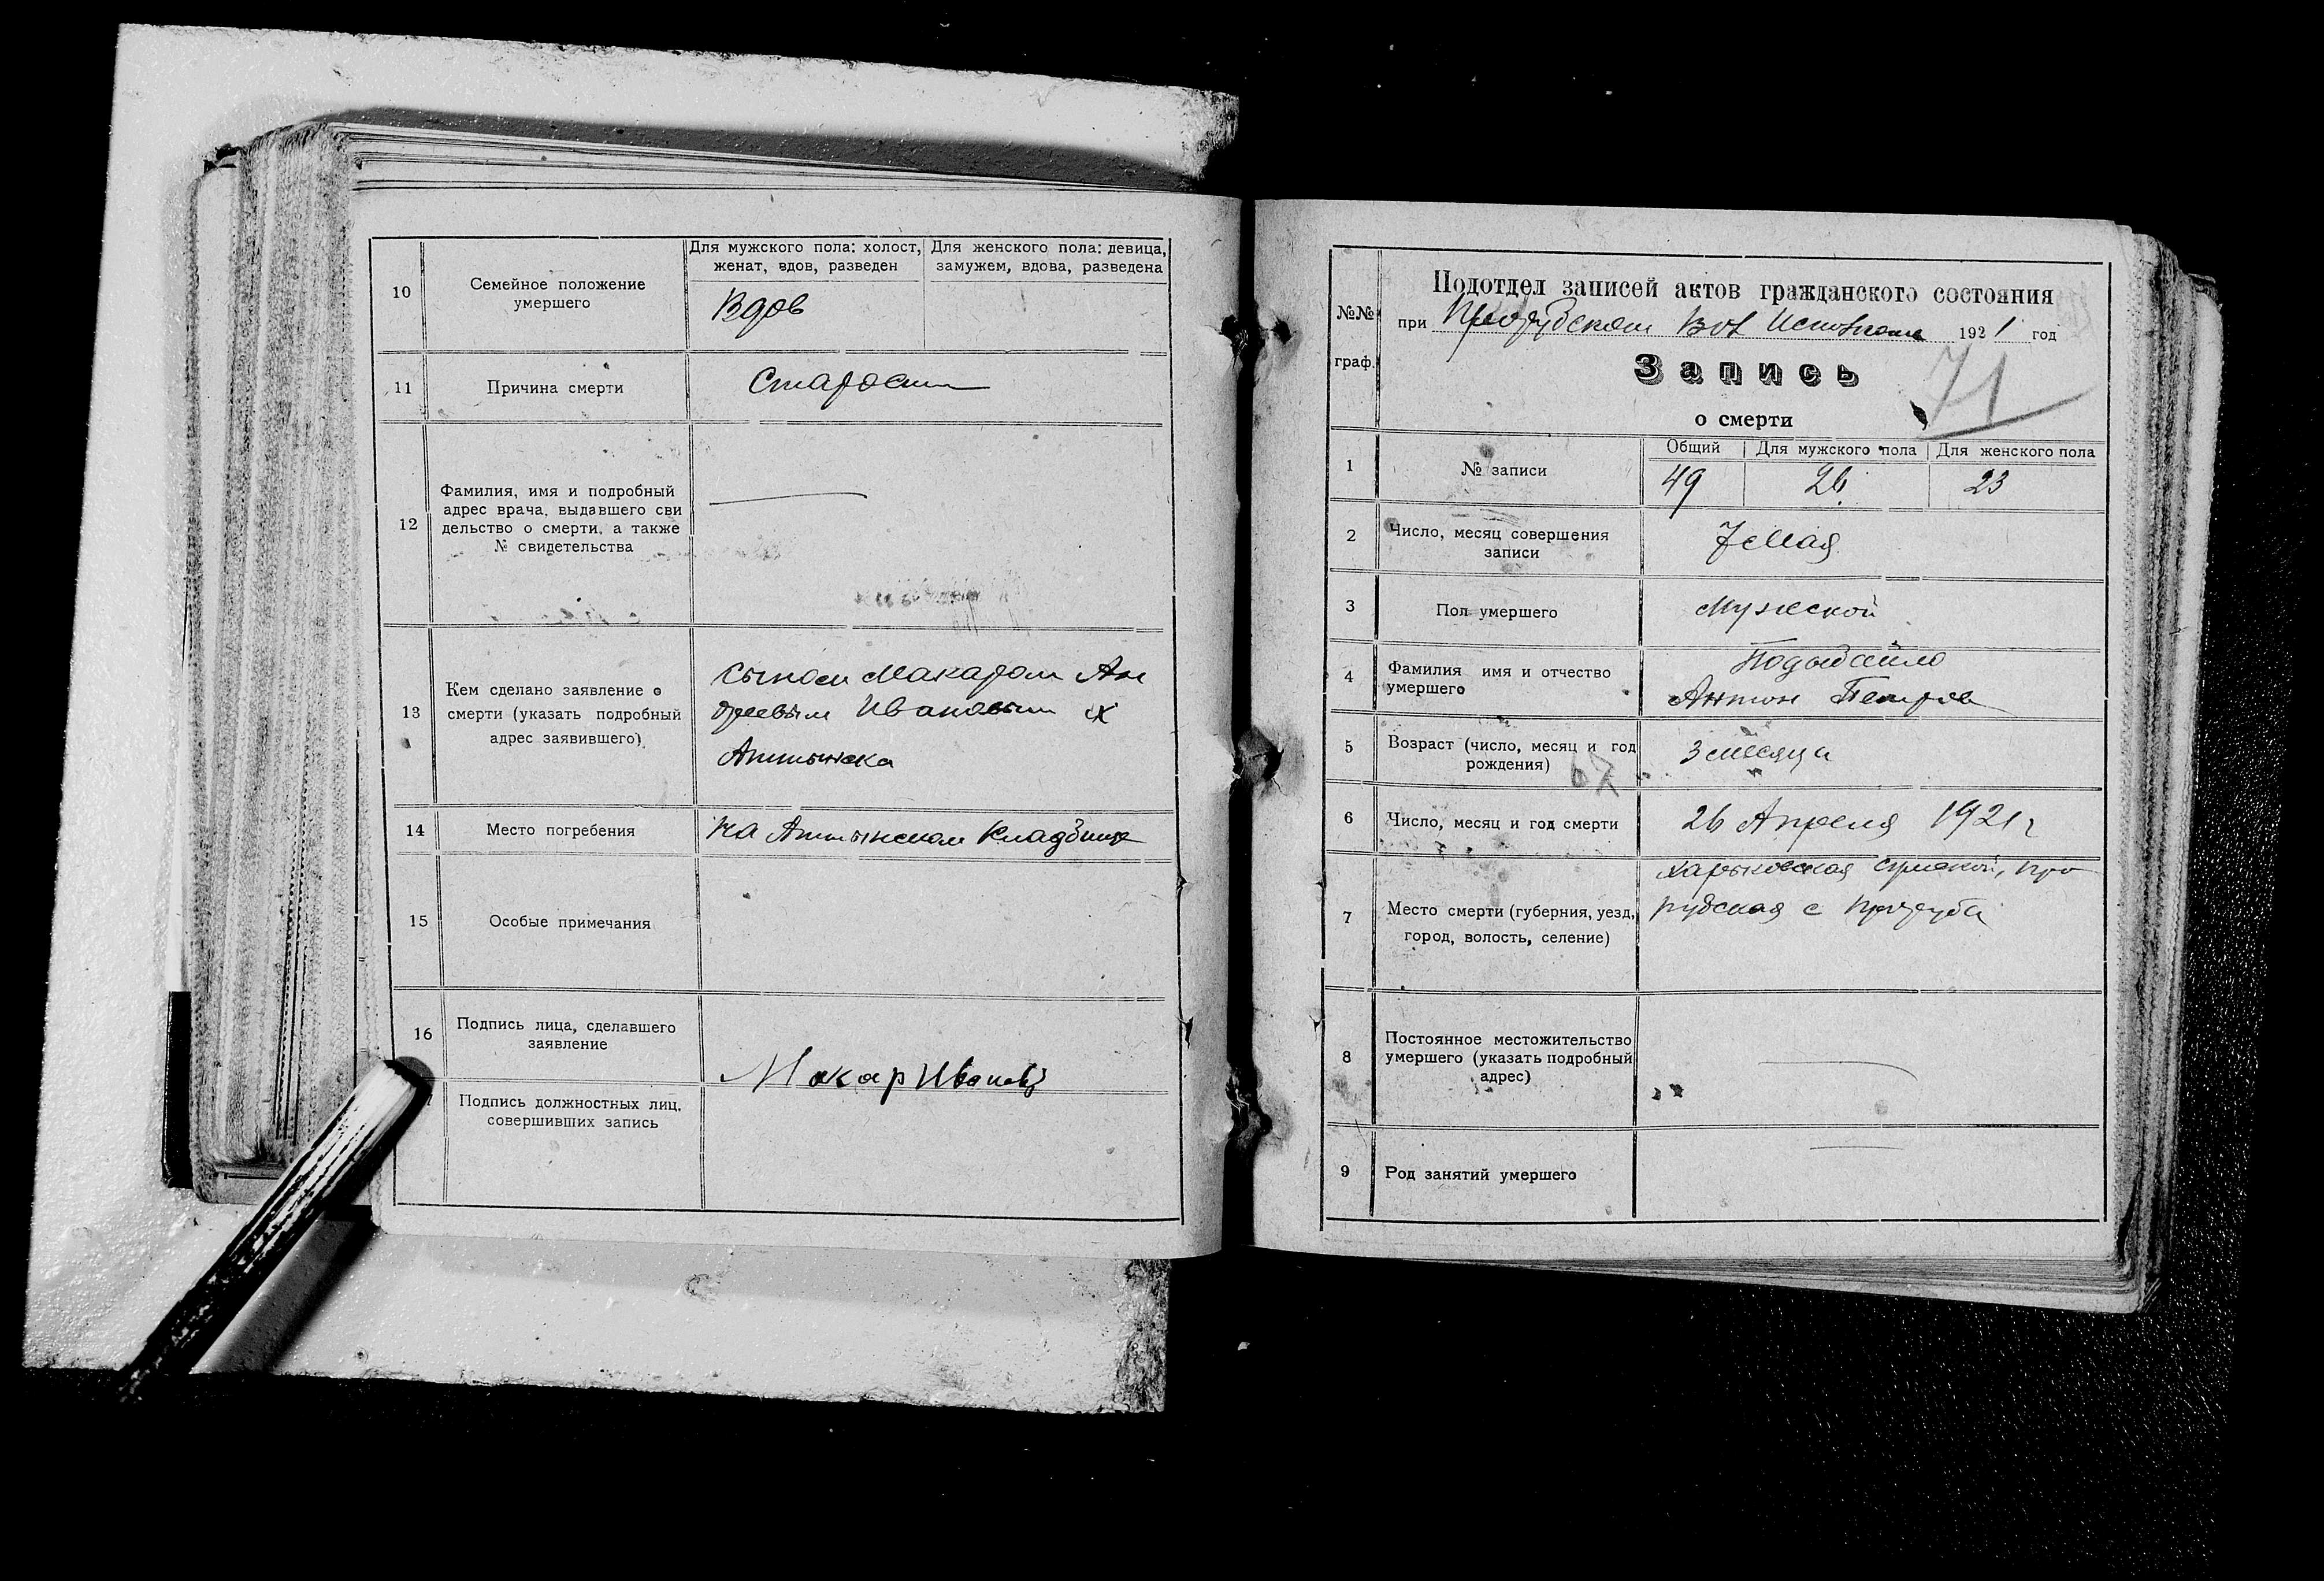 10
Семейное положение
умершего
Для мужского пола: холост,
женат, вдов, разведен
Для женского пола: девица,
замужем, вдова, разведена
Вдов
11
Причина смерти
Старости
12
Фамилия, имя и подробный
адрес врача, выдавшего сви
дельство о смерти, а также
№ свидетельства
13
Кем сделано заявление о
смерти (указать подробный
адрес заявившего)
Сыном Макаром Ан
дреевым Ивановым х
14
Место погребения
На кладбище
15
Особые примечания
16
Подпись лица, сделавшего
заявление
Макар Иванов
Подпись должностных лиц,
совершивших запись
№№
граф.
Подотдел записей актов гражданского состояния
при Прорубском Вол Исполкоме 1921 год
Запись
71
о смерти
1
№ записи
Общий
Для мужского пола
Для женского пола
49
26
23
2
Число, месяц совершения
записи
7 Мая
3
Пол умершего
Мужской
4
Фамилия имя и отчество
умершего
Антон Петров
5
Возраст (число, месяц и год
рождения)
67
3 месяца
6
Число, месяц и год смерти
26 Апреля 1921 г
7
Место смерти (губерния, уезд,
город, волость, селение)
Харьковская Сумской, Про
рубская с Проруба
8
Постоянное местожительство
умершего (указать подробный
адрес)
9
Род занятий умершего